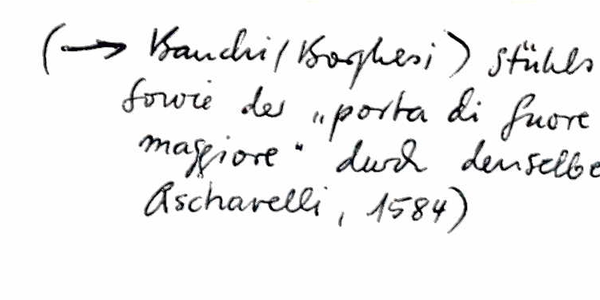 (→ Bandi/Borghesi) stühls
sowie der „porta di fuore
maggiore" durch denselbe
Ascharelli, 1584)